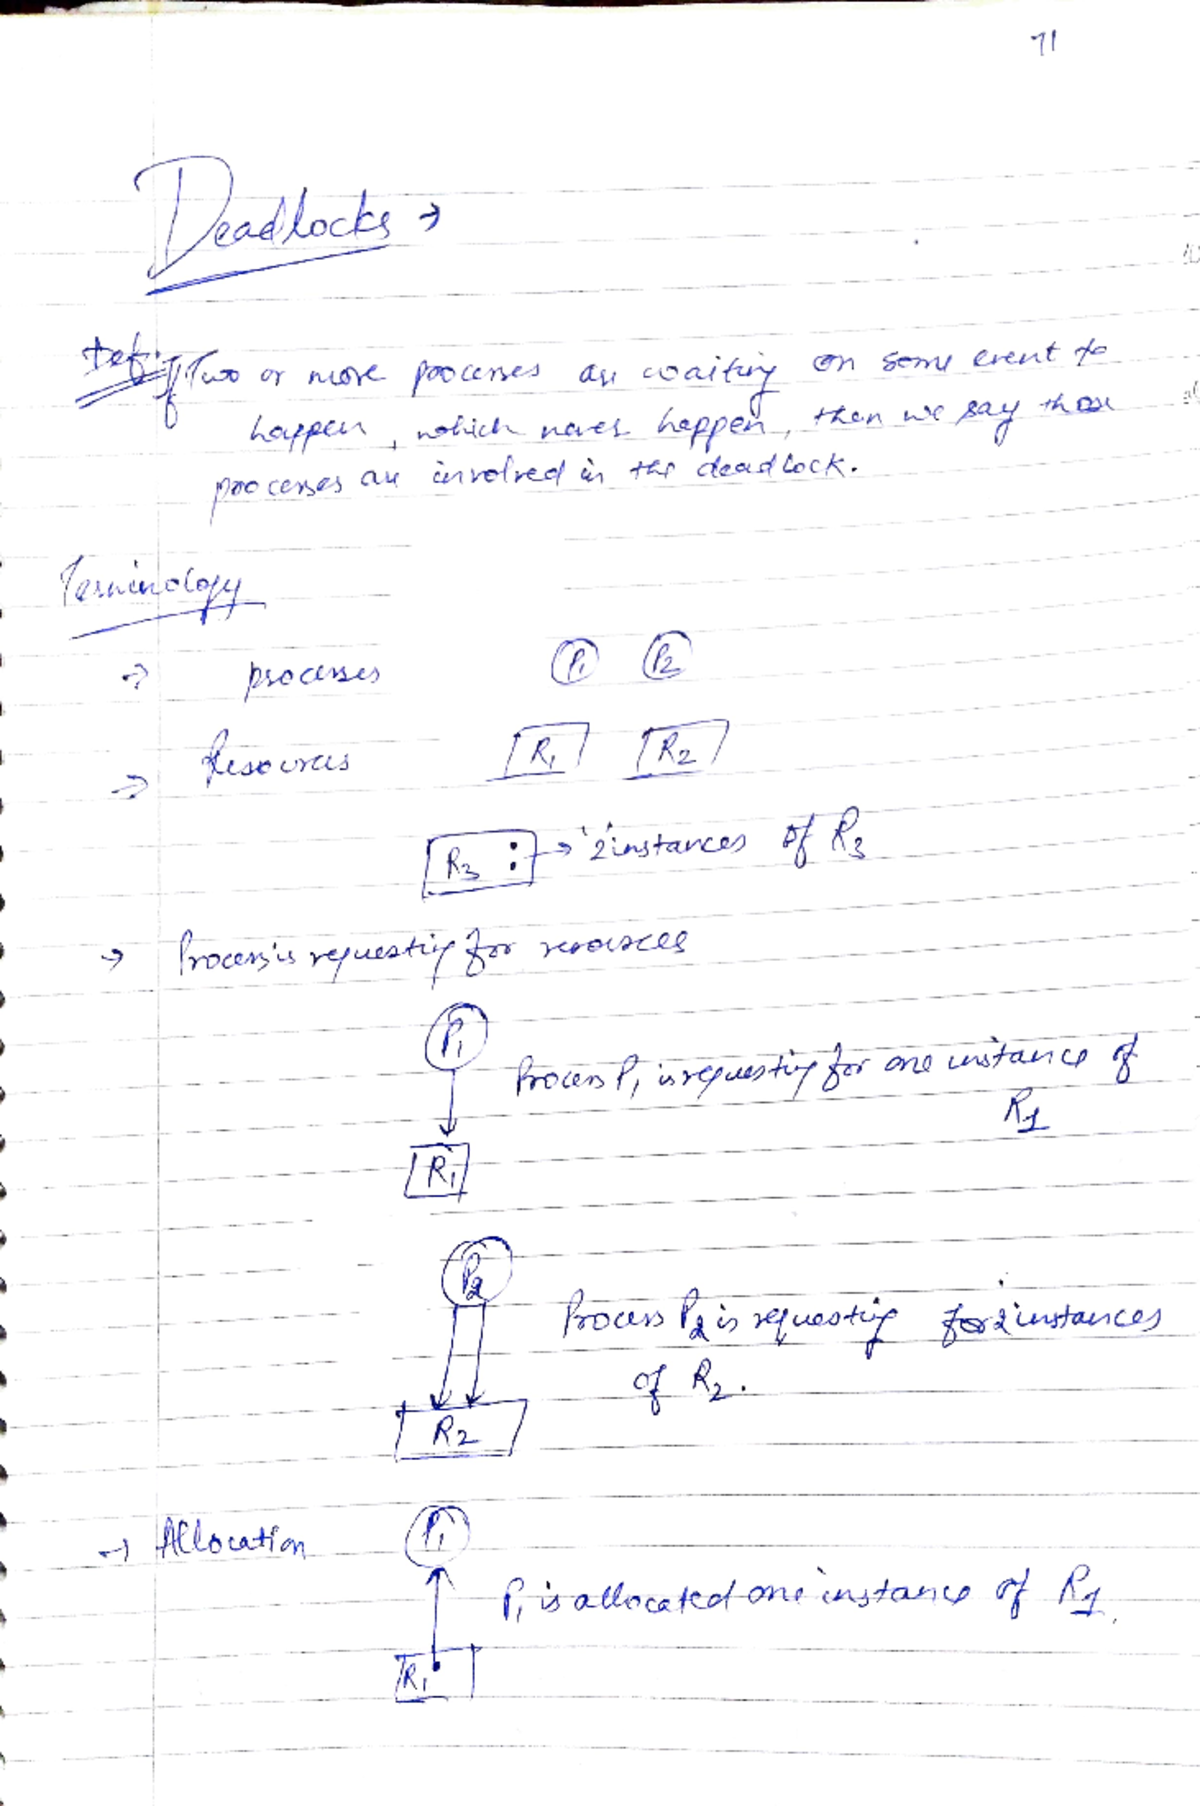 71
Deadlocks →
Def: If Two or more processes are waiting on some event to
happen, which never happen, then we say those
processes are involved in the deadlock.
Terminology
→ processes P1 P2
→ Resources R1 R2
R3 : → '2' instances of R3
→ Process is requesting for resources
P1
Process P1 is requesting for one instance of
R1
R1
P2
Process P2 is requesting for 2 instances
of R2.
R2
→ Allocation P1
P1 is allocated one instance of R1.
R1